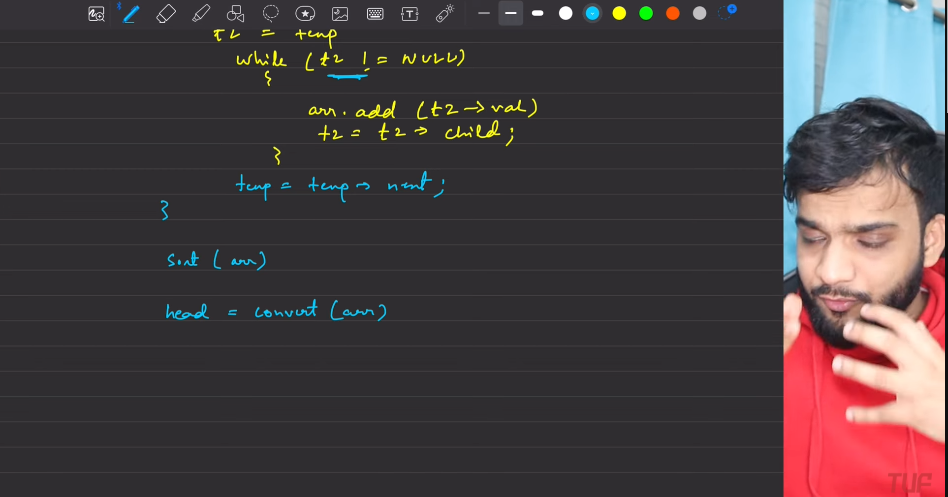 t2 = temp
while (t2 != NULL)
{
arr.add (t2→val)
t2 = t2→ child;
}
temp = temp→ next;
}
sort (arr)
head = convert (arr)
TUF